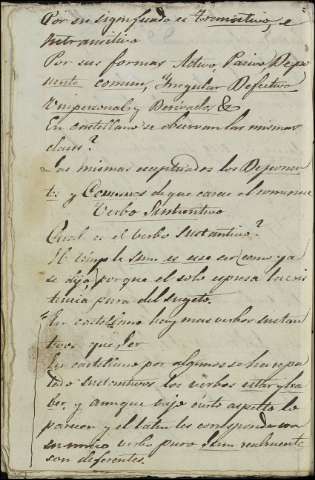 Por su significado es transitivo, é
Intransitivo
Por sus formas Activo, Pasivo Depo
nente comun, Irregular Defectivo
Impersonal y Derivados &
En castellano se observan las mismas
clases?
Las mismas exceptuados los Deponen
tes y Comunes de que carece el romance
Verbo Sustantivo
Cual es el verbo sustantivo?
El simple Sum es ese ser como ya
se dijo, porque el solo espresa la exis
tencia pura del sugeto.
En castellano hay mas verbos sustan
tivos que ser
En castellano por algunos se han repu
tado sustantivos los verbos estar y ha
ber, y aunque bajo cierto aspecto lo
parecen y el latin les corresponda con
su unico verbo puro Sum realmente
son diferentes.